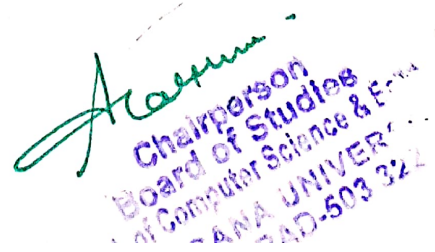 Chairperson
Board of Studies
of Computer Science & E
ANA UNIVER
AD-503 322